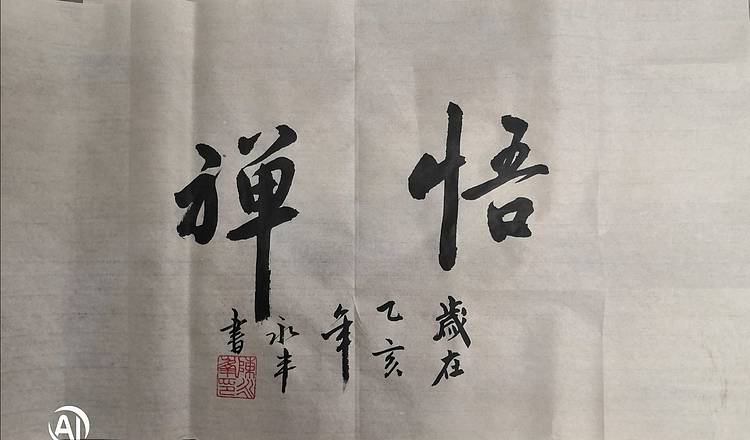 悟禅
歳在
乙亥
年
永丰
书
AI